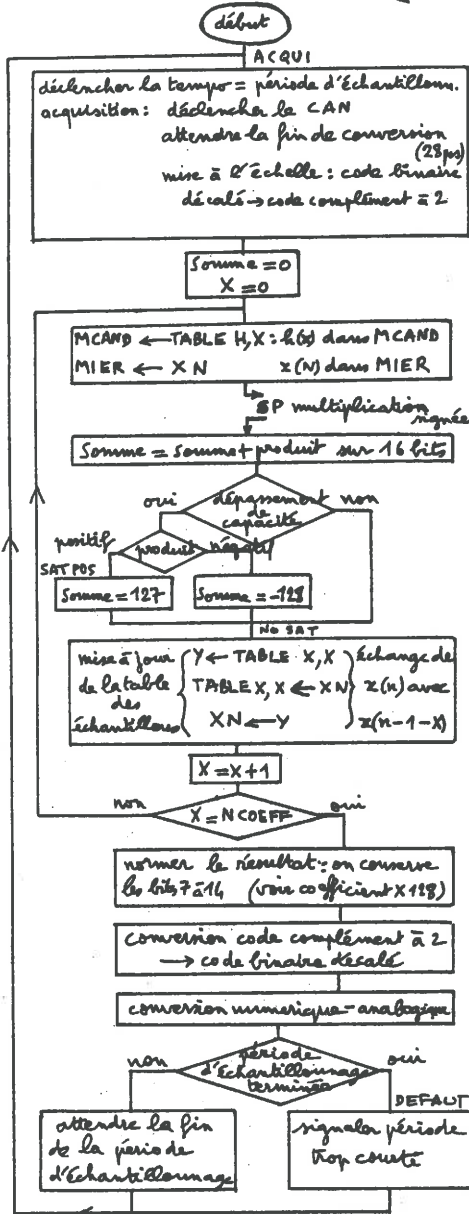 début
ACQUI
déclencher la tempo = période d'échantillonn.
acquisition: déclencher le CAN
attendre la fin de conversion
(28µs)
mise à l'échelle: code binaire
décalé → code complément à 2
Somme = 0
X = 0
MCAND ← TABLE H,X : h(x) dans MCAND
MIER ← XN x(N) dans MIER
SP multiplication
signée
Somme = Somme + produit sur 16 bits
oui dépassement non
de
capacité
positif produit négatif
SATPOS
Somme = 127 Somme = -128
NO SAT
mise à jour Y ← TABLE X,X échange de
de la table TABLE X,X ← XN x(n) avec
des
échantillons XN ← Y x(n-1-X)
X = X+1
non X = NCOEFF oui
normer le résultat: on conserve
les bits 7 à 14 (voir coefficient X 128)
conversion code complément à 2
→ code binaire décalé
conversion numérique-analogique
non période oui
d'échantillonnage
terminée
DEFAUT
attendre la fin
de la période
d'échantillonnage
signaler période
trop courte